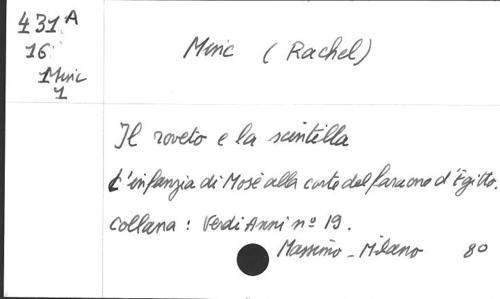 431 A
16
Miric
1
Miric (Rachel)
Il roveto e la scintilla
L'infanzia di Mosè alla corte del faraone d'Egitto.
Collana: Verdi Anni nº 19.
Massimo - Milano 80